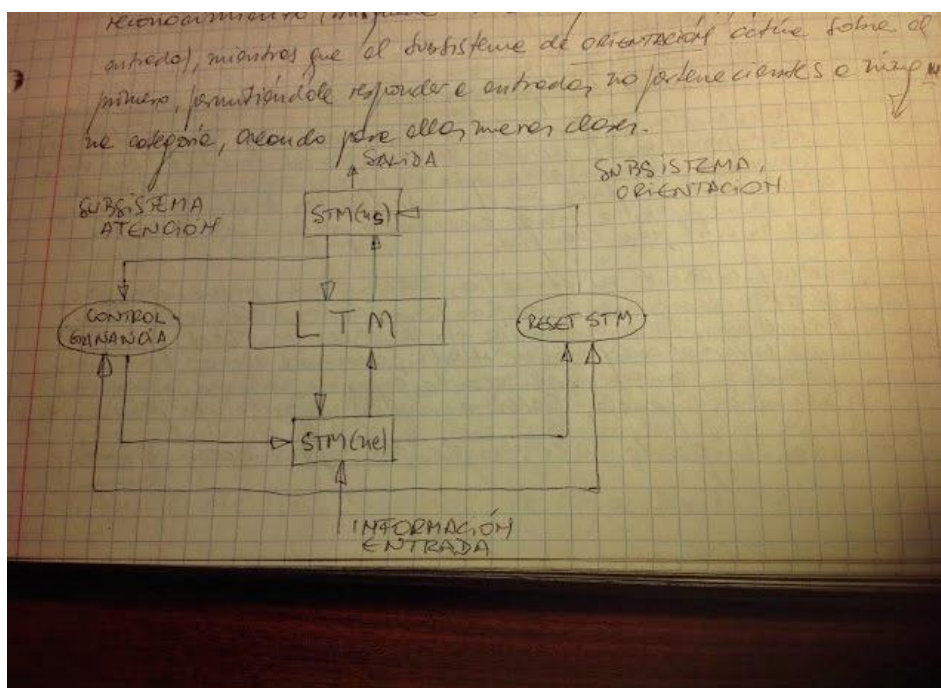 reconocimiento
entrada), mientras que el subsistema de ORIENTACIÓN actúa sobre el
primero, permitiéndole responder a entradas no pertenecientes a ningu
na categoría, creando para ellas nuevas clases.
SALIDA
SUBSISTEMA
ORIENTACIÓN
SUBSISTEMA
ATENCIÓN
STM(ns)
CONTROL
GANANCIA
LTM
RESET STM
STM(ne)
INFORMACIÓN
ENTRADA